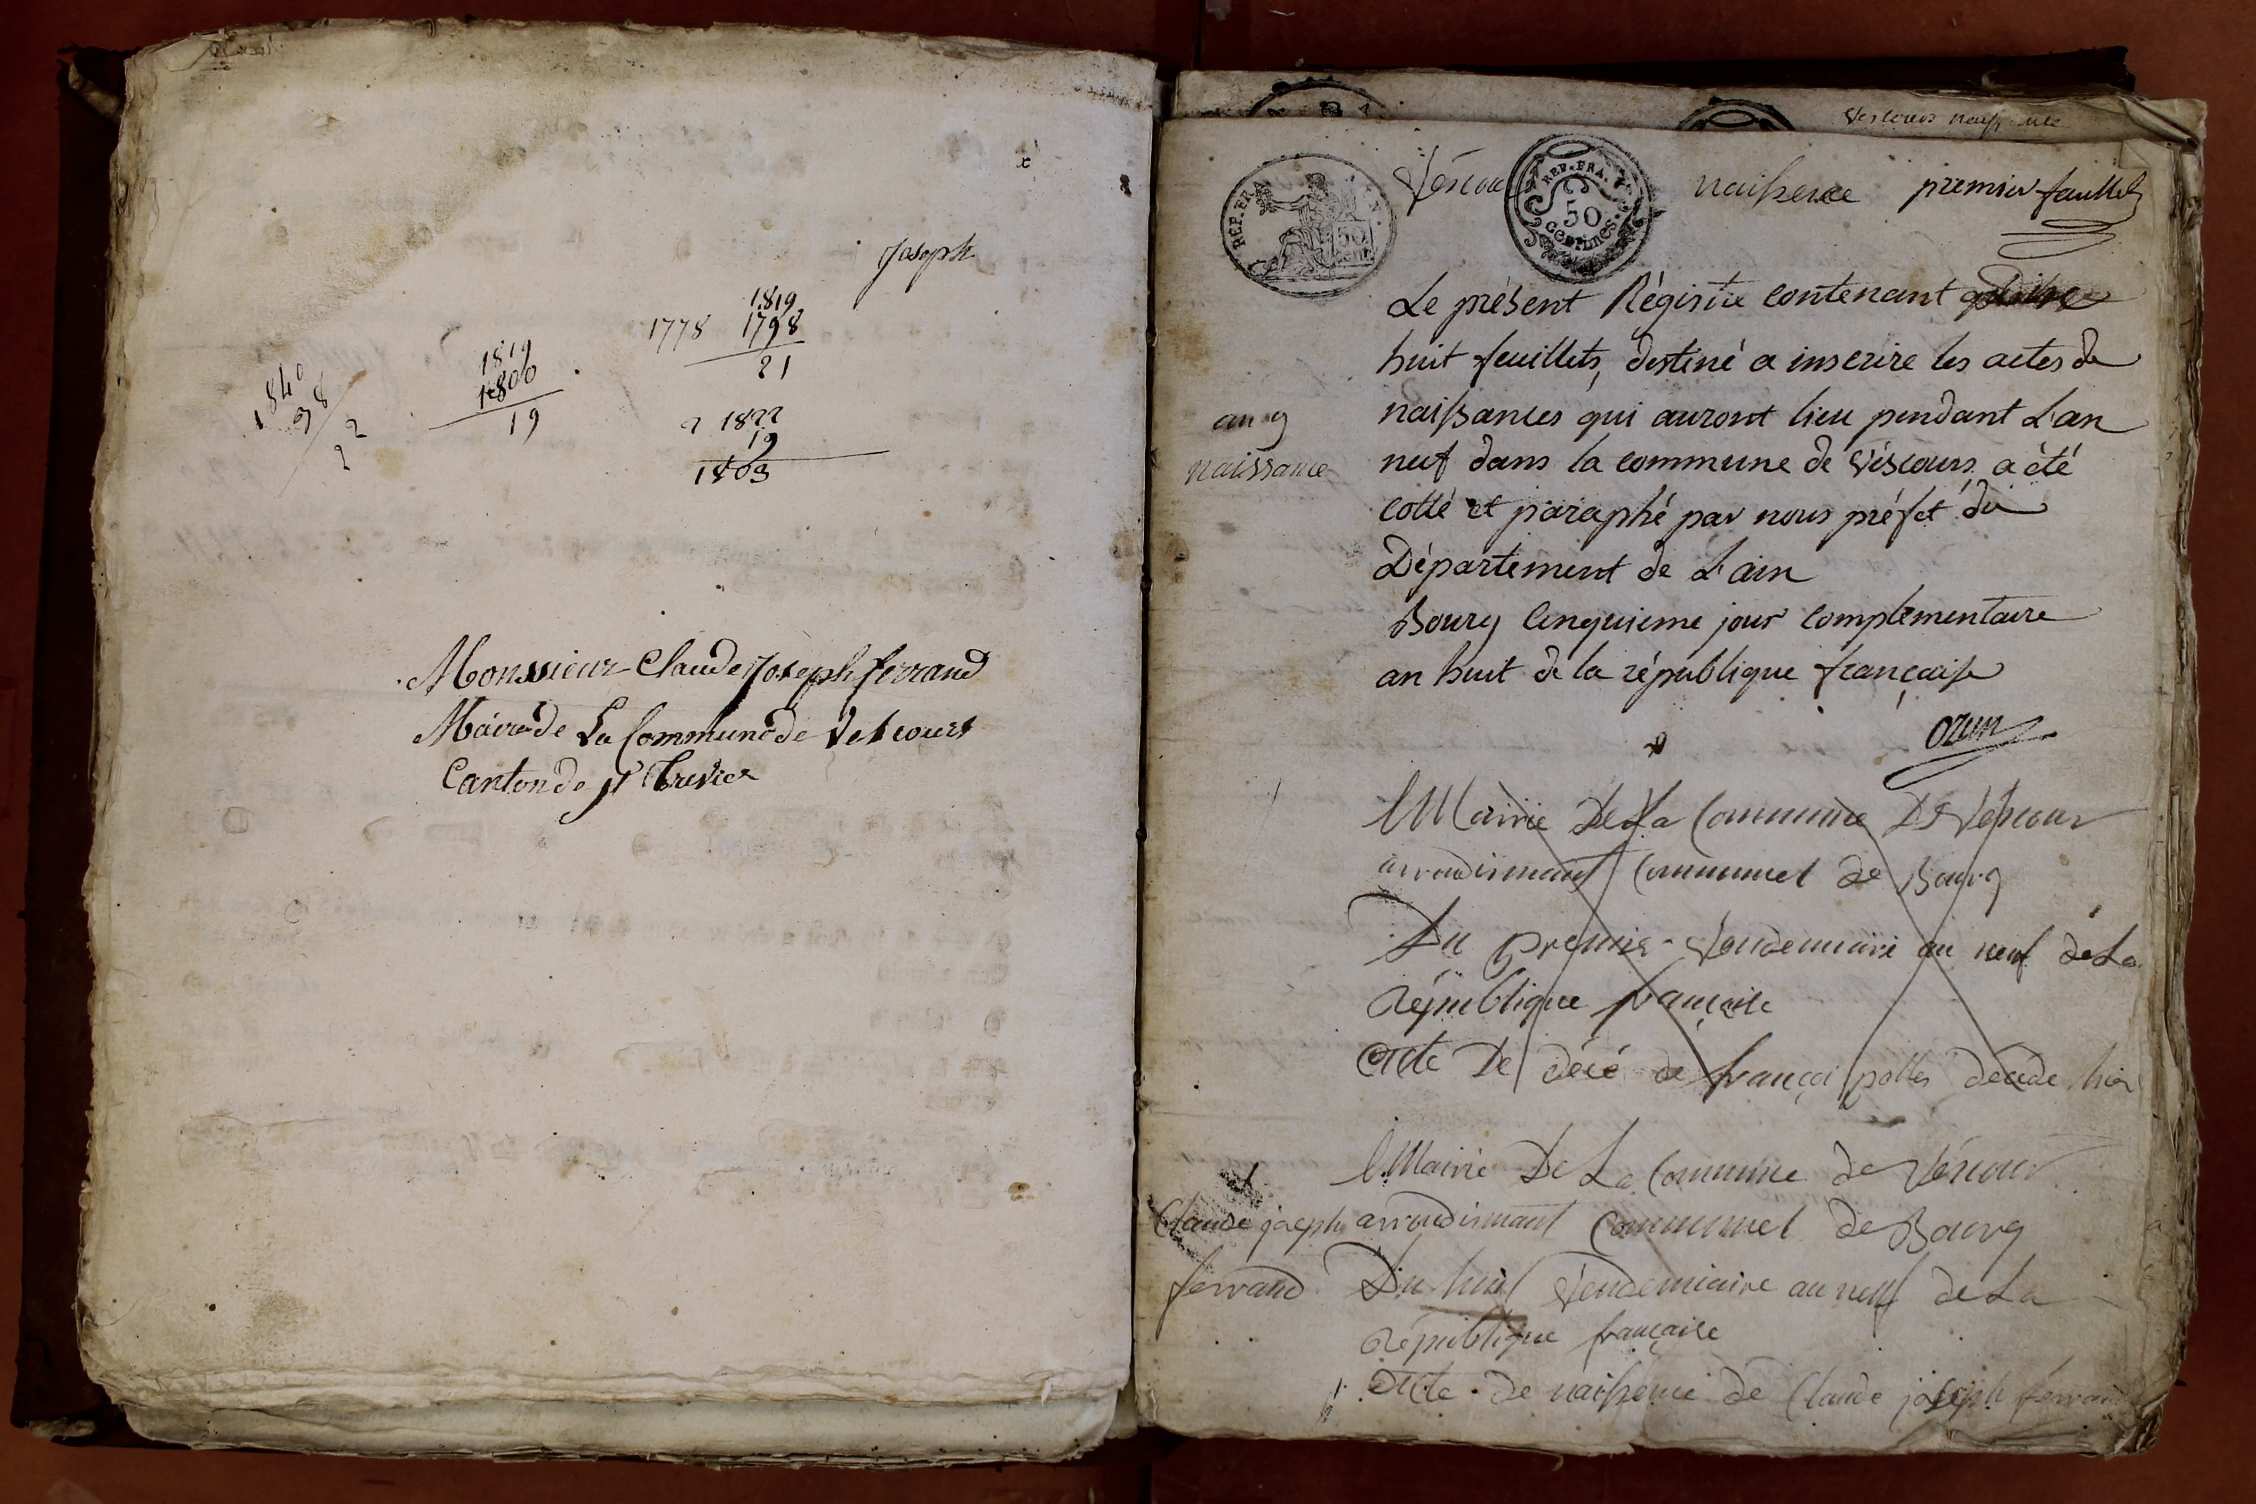 Joseph
1819
1778 1798
21
1819
1800
19
1840
98
22
2 1822
19
1803
Monssieur Claude Joseph ferrand
Maire de La Commune de Vescours
Canton de st Trevier
Vescours naiss
REP. FRA.
REP. FRA.
50
CENTIMES.
naissence premier feuillet
Le présent Régistre contenant
huit feuillets, destiné a inscrire les actes de
naissances qui auront lieu pendant L'an
an 9
naissance
neuf dans la commune de Véscours a été
cotté et paraphé par nous préfet du
Département de L'ain
Bourg Cinquieme jour complementaire
an huit de la république française
ozun
Mairie De La Commune De Vescour
arrondismant Communel de Bourg
Du premier Vendemiaire an neuf de La
République française
Acte De décé de françoi décéde hier
1
Mairie De La Commune de Vescour
Claude joseph
ferrand
arrondismant Communel de Bourg
Du huit Vendemiaire an neuf de La
République française
Acte de naissence de Claude joseph ferrand